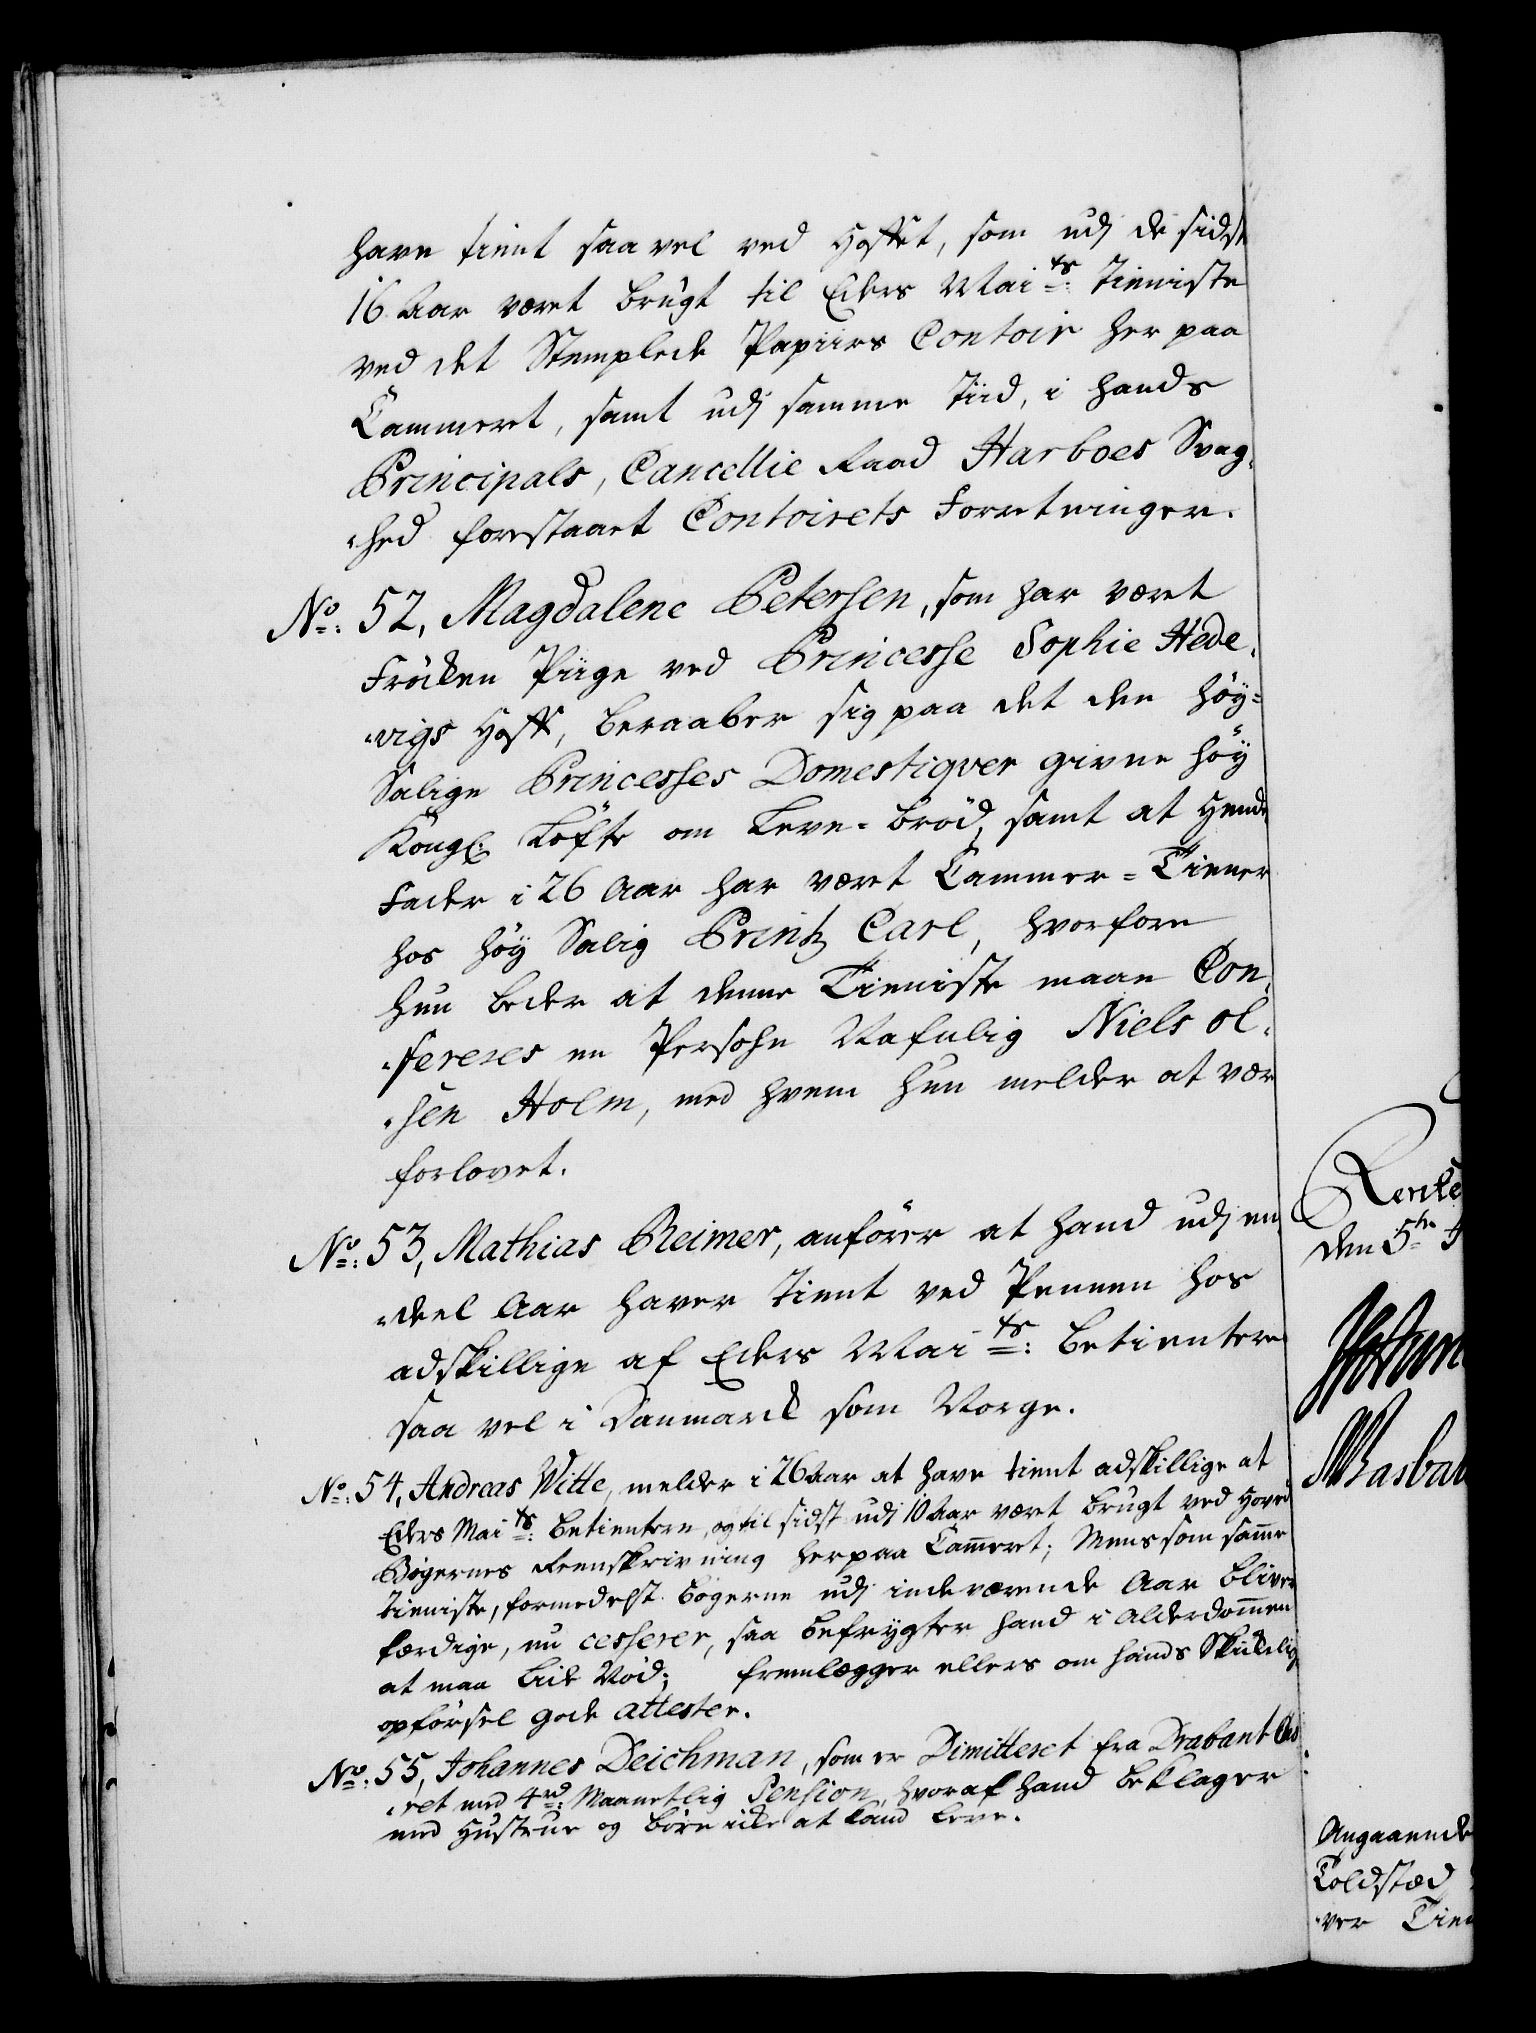 have tient saavel ved Hoffet, som udj de sidste
16 Aar været brugt til Eders Mai ts: Tieniste
ved det Stemplede Papiirs Contoir her paa
Cammeret, samt udj samme Tiid, i hands
Principals, Cancellie Raad Harboes Svag,
,hed forestaaet Contoirets Forretninger.
No: 52, Magdalene Petersen, som har været
Fröcken Piige ved Princesse Sophie Hede,
,vigs Hoff, beraaber sig paa det den höy=
Salige Princesses Domestiqver givne höy
Kongl: Löfte om Leve-bröd, samt at Hendes
Fader i 26 Aar har været Cammer=Tiener
hos höy Salig Printz Carl, hvorfore
hun beder at denne Tieniste maae Con,
,fereres en Persohn Nafnlig Niels Ol,
,sen Holm, med hvem hun melder at være
forlovet.
No: 53, Mathias Reimer, anförer at hand udj en
,deel Aar haver tient ved Pennen hos
adskillige af Eders Mai ts: betientere
saa vel i Danmarck som Norge.
No: 54, Andreas Witte, melder i 26 Aar at have tient adskillige af
Eders Mai ts: betientere, og til sidst udj 10 Aar vært brugt ved Hoved
Bögernes Reenskrivning her paa Cammeret; Mens som samme
tieniste, formedelst bögerne udj indeværende Aar bliver
færdige, nu cesserer, saa befrygter hand i Alderdommen
at maa lide Nöd; fremlægger ellers om hands Skickelig
opförsel gode attester.
No: 55, Johannes Deichman, som er Dimitteret fra Drabant
,ret med 4 rd: Maanetlig Pension, hvoraf hand beklager
med Hustrue og börn icke at kand leve.
den 5te
Angaaende
Toldstæd
,ver